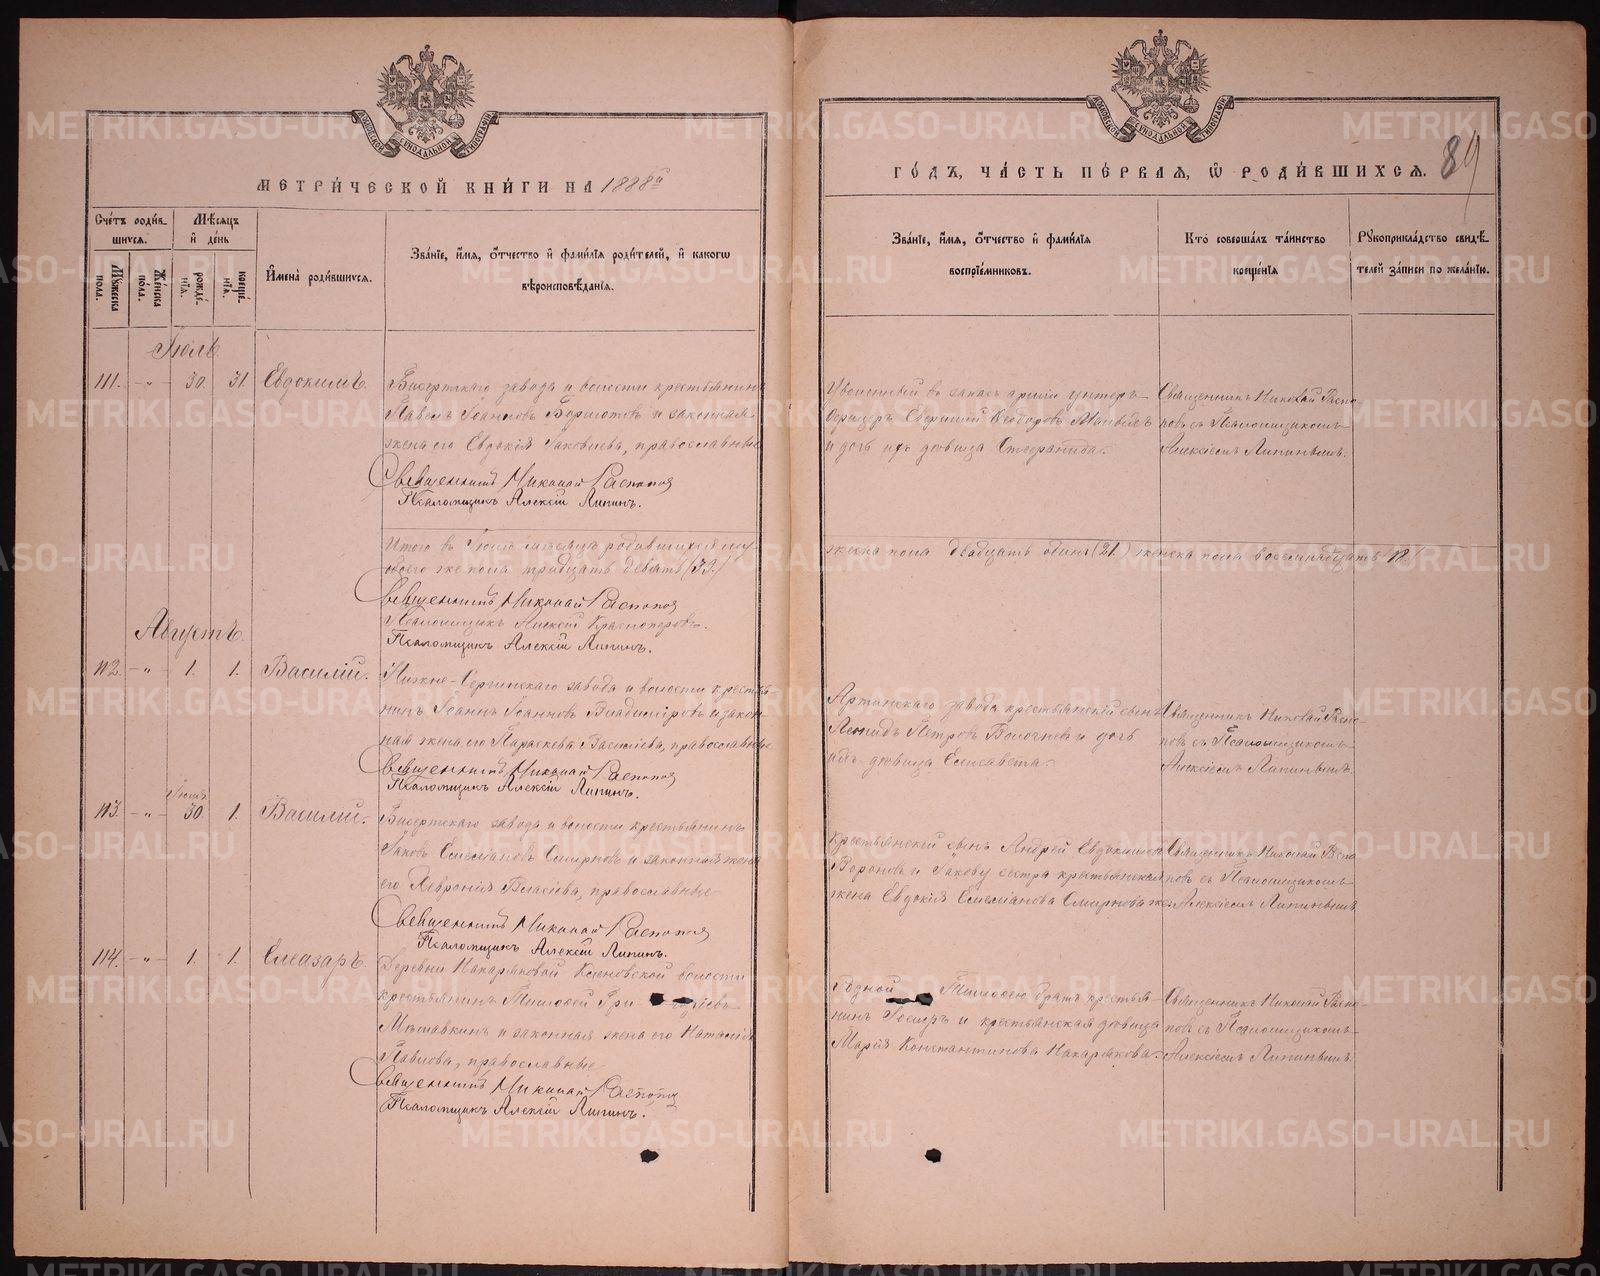 МЕТРИ́ЧЕСКОЙ КНИ́ГИ НА 1888й
ГО́ДЪ, ЧА́СТЬ ПЕ́РВАЯ, Ѡ РОДИ́ВШИХСЯ.
89
МОСКОВСКОЙ СѴНОДАЛЬНОЙ ТИПОГРАФІИ
МОСКОВСКОЙ СѴНОДАЛЬНОЙ ТИПОГРАФІИ
Сче́тъ роди́в-
шихся.
Мѣ́сяцъ
и҆ де́нь
Мꙋ́жеска
по́ла.
Же́нска
по́ла.
рожде́-
нїя.
креще́-
нїя.
И҆мена̀ роди́вшихся.
Зва́нїе, и҆́мя, ѻ҆́тчество и҆ фами́лїя роди́телей, и҆ како́гѡ
вѣроисповѣ́данїя.
Зва́нїе, и҆́мя, ѻ҆́тчество и҆ фами́лїя
воспрїе́мниковъ.
Кто̀ соверша́лъ та́инство
креще́нїя
Рꙋкоприкла́дство свидѣ́-
телей за́писи по жела́нїю.
Іюль
111. - „ - 30. 31. Евдокимъ.
Бисертскаго завода и волости крестьянинъ
Павелъ Іоанновъ и законная
жена его Евдокія Іаковлева, православные
Священникъ Николай Распопов
Псаломщикъ Алексій Липинъ.
Уволенный въ запасъ арміи унтеръ-
Офицеръ Ѳеодоровъ
и дочь дѣвица
Священникъ Николай Распо-
повъ съ Псаломщикомъ
Алексіемъ Липинымъ.
Итого въ Іюлѣ мѣсяцѣ родившихся му-
жескаго пола тридцать девять (39.)
жеска пола двадцать одинъ (21.) женска пола восемнадцать 18.
Священникъ Николай Распопов
Псаломщикъ Алексій Красноперовъ.
Псаломщикъ Алексій Липинъ.
Августъ
112. - „ - 1. 1. Василій.
Нижне-Сергинскаго завода и волости крестья-
нинъ Іоаннъ Іоанновъ Владиміровъ и закон-
ная жена его Параскева Васильева, православные.
Священникъ Николай Распопов
Псаломщикъ Алексій Липинъ.
Артинскаго завода крестьянскій сынъ
Леонидъ Петровъ и дочь
дѣвица Елисавета.
Священникъ Николай Распо-
повъ съ Псаломщикомъ
Алексіемъ Липинымъ.
Іюля
113. - „ - 30. 1. Василій.
Бисертскаго завода и волости крестьянинъ
Іаковъ Емельяновъ Смирновъ и законная жена
его Ѳевронія Власіева, православные
Священникъ Николай Распопов
Псаломщикъ Алексій Липинъ.
Крестьянскій сынъ Андрей Евдокимовъ
Вороновъ и Іакову сестра крестьянская
жена Евдокія Емельянова Смирнова же.
Священникъ Николай Распо-
повъ съ Псаломщикомъ
Алексіемъ Липинымъ
114. - „ - 1. 1. Елеазаръ.
Деревни Накаряковой Кленовской волости
крестьянинъ Тимоѳей Гри
и законная жена его Наталія
Павлова, православные
Священникъ Николай Распопов
Псаломщикъ Алексій Липинъ.
Родной Тимоѳею братъ крестья-
нинъ и крестьянская дѣвица
Марія Константинова Накарякова.
Священникъ Николай Распо-
повъ съ Псаломщикомъ
Алексіемъ Липинымъ.
METRIKI.GASO-URAL.RU